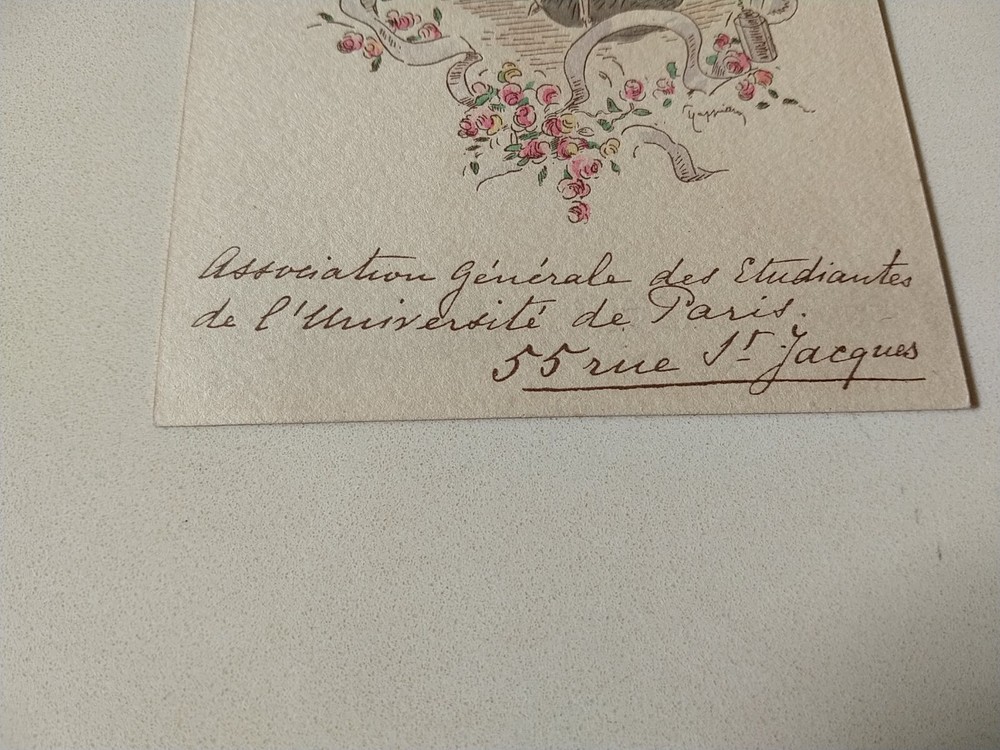 Association Générale des Etudiantes
de l'Université de Paris.
55 rue St Jacques